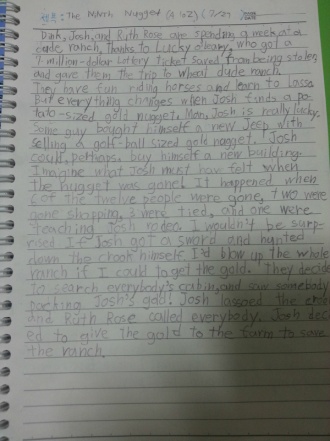 제목: The Ninth Nugget (A to Z)
Dink, Josh, and Ruth Rose are spending a week at a
dude ranch, thanks to Lucky O'leary, who got a
7-million-dollar lottery ticket saved from being stolen
and gave them the trip to Wheal dude ranch.
They have fun riding horses and learn to lasso
But everything changes when Josh finds a po-
tato-sized gold nugget. Man, Josh is really lucky.
Some guy bought himself a new Jeep with
selling a golf-ball sized gold nugget. Josh
could, perhaps, buy himself a new building.
Imagine what Josh must have felt when
the nugget was gone! It happened when
6 of the twelve people were gone, two were
gone shopping, 3 were tied, and one were
teaching Josh rodeo. I wouldn't be surp-
rised if Josh got a sword and hunted
down the crook himself. I'd blow up the whole
ranch if I could to get the gold. They decide
to search everybody's cabin, and saw somebody
Josh's gold! Josh lassoed the crook
and Ruth Rose called everybody. Josh decid-
ed to give the gold to the farm to save
the ranch.